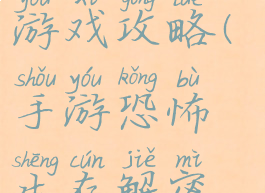 yóu xì gōng lüè
游戏攻略(
shǒu yóu kǒng bù
手游恐怖
shēng cún jiě mì
生存解密